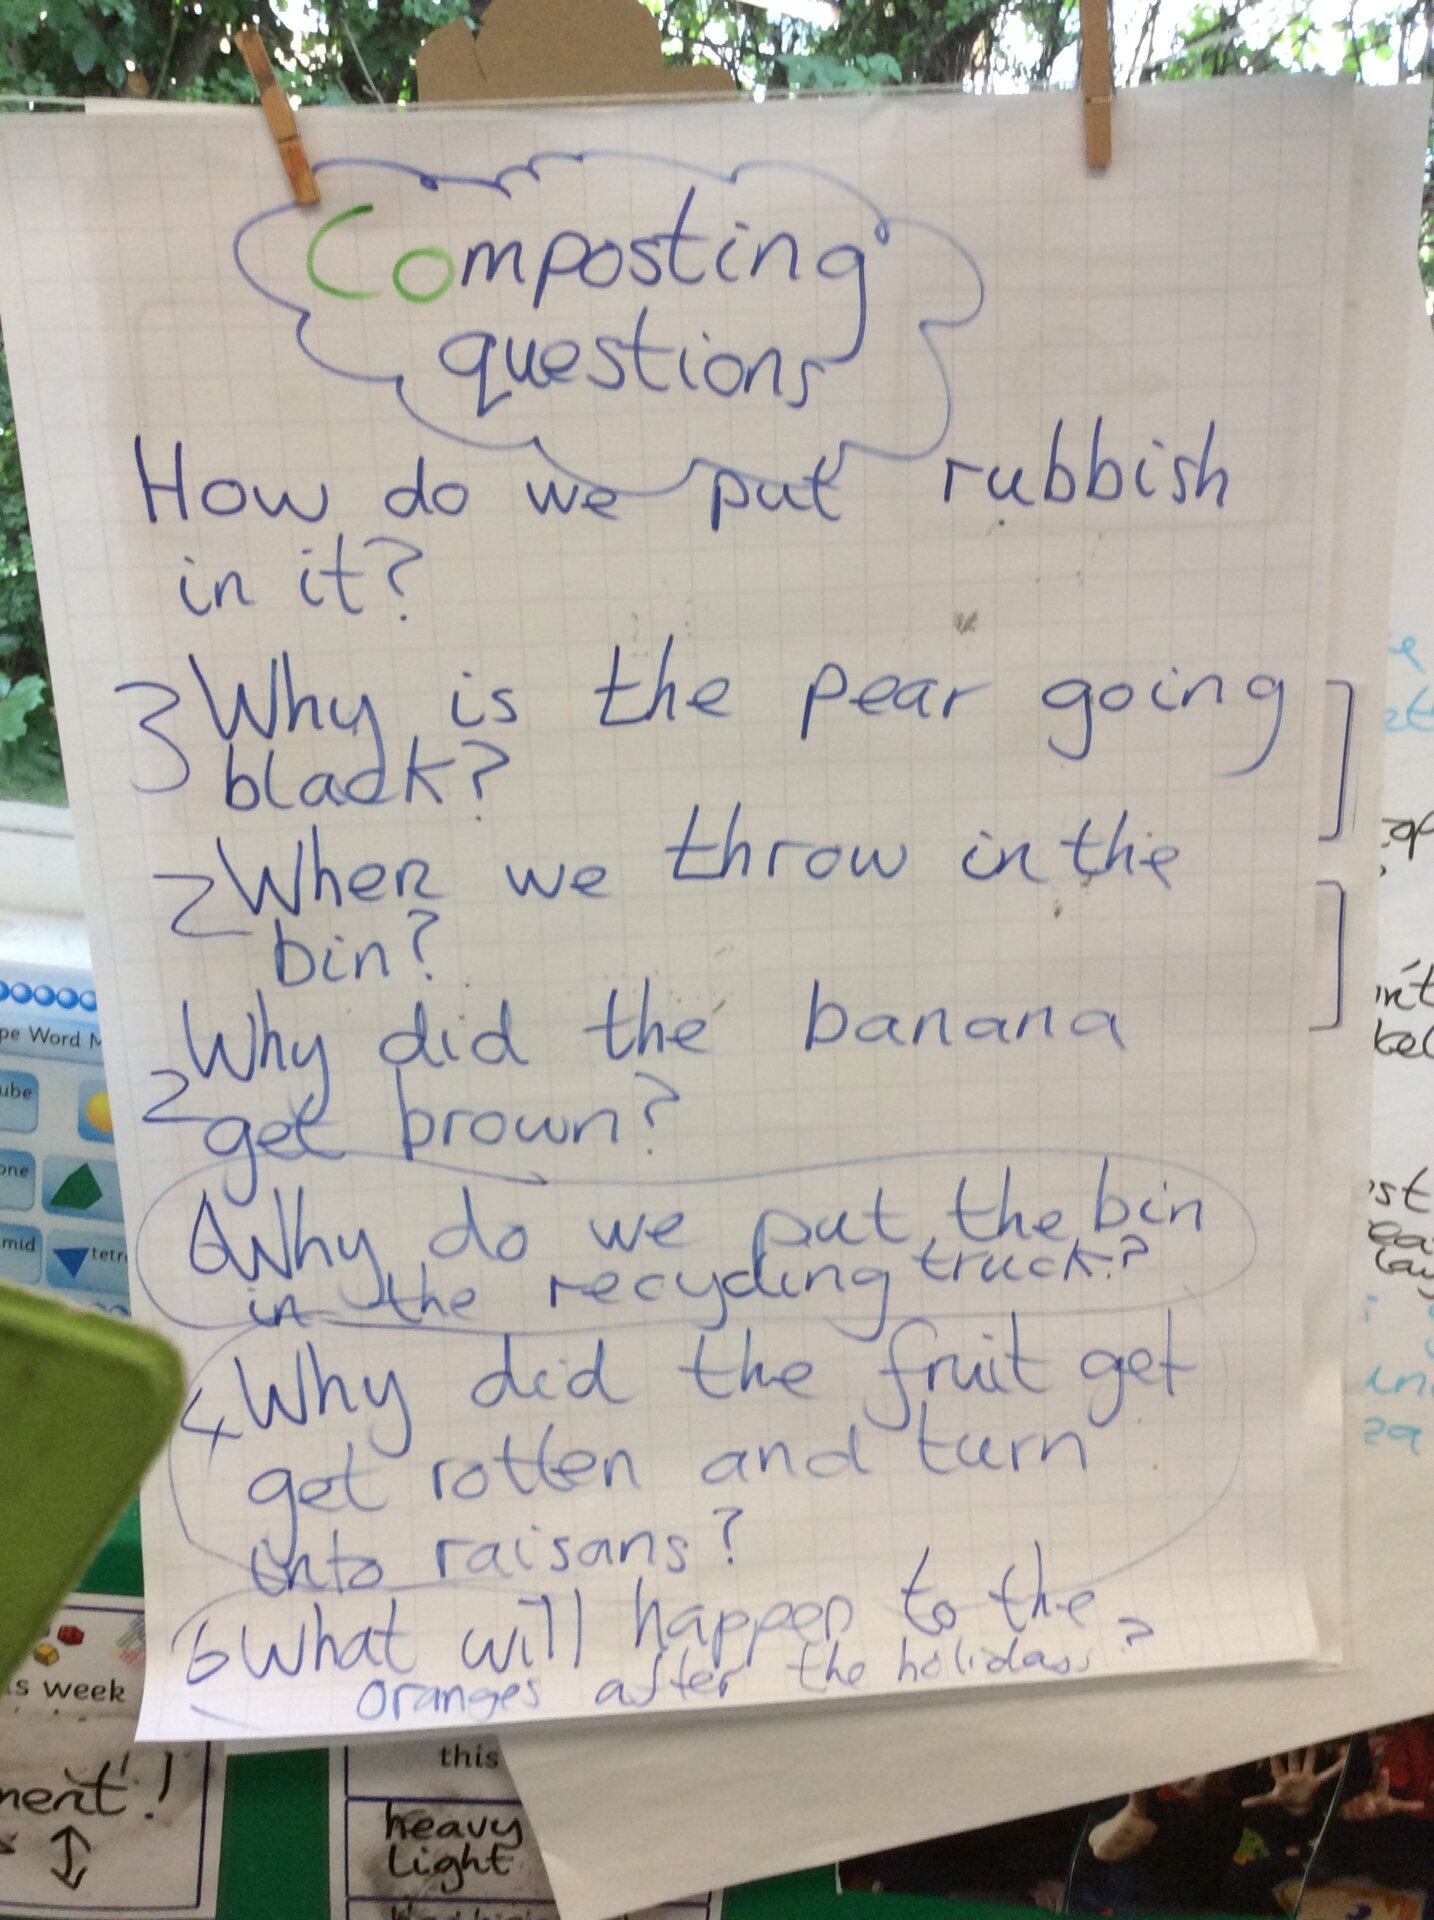 Composting
questions
How do we put rubbish
in it?
3 Why is the pear going
black?
2 When we throw in the
bin?
Why did the banana
2 get brown?
6 Why do we put the bin
in the recycling truck?
4 Why did the fruit get
get rotten and turn
into raisans?
6 What will happen to the
oranges after the holidays?
pe Word M
ube
one
mid
tetr
s week
ment!
this
heavy
light